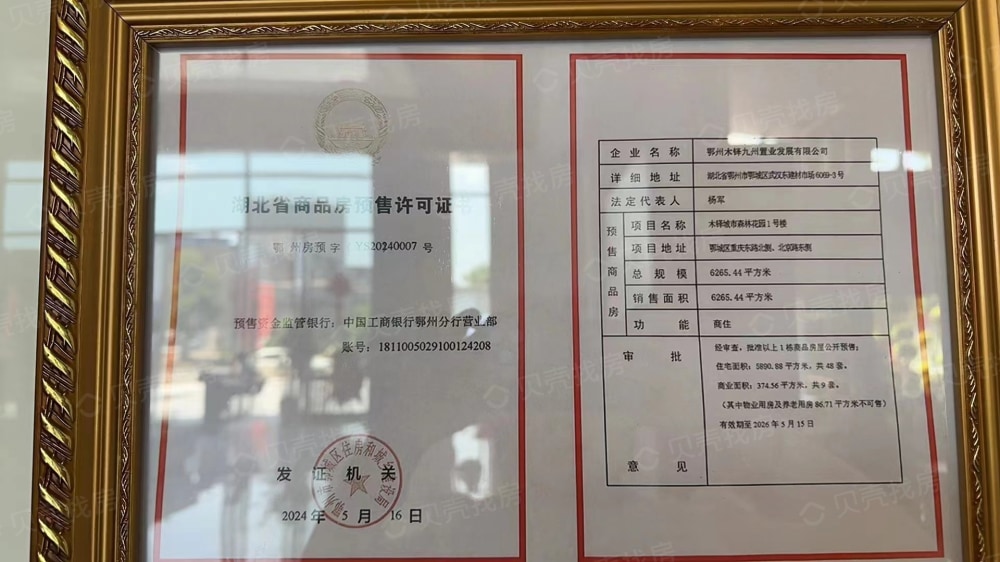 湖北省商品房预售许可证书
鄂州房预字 YS20240007 号
预售资金监管银行：中国工商银行鄂州分行营业部
账号：1811005029100124208
发证机关
2024年5月16日
企业名称 鄂州木铎九州置业发展有限公司
详细地址 湖北省鄂州市鄂城区武汉东建材市场6069-3号
法定代表人 杨军
预售商品房
项目名称 木铎城市森林花园1号楼
项目地址 鄂城区重庆东路北侧、北京路东侧
总规模 6265.44平方米
销售面积 6265.44平方米
功能 商住
审批意见
经审查，批准以上1栋商品房屋公开预售；
住宅面积：5890.88平方米，共48套。
商业面积：374.56平方米，共9套。
（其中物业用房及养老用房86.71平方米不可售）
有效期至2026年5月15日
贝壳找房